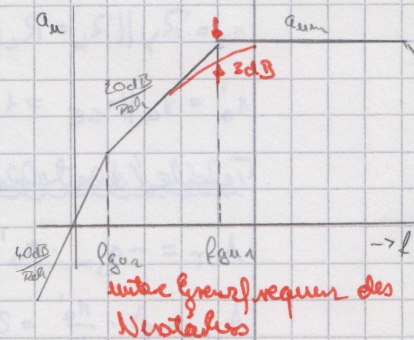 au
aum
20dB
Dek
3dB
40dB
Dek
fgu2
fgu1
→ f
untere Grenzfrequenz des
Verstärkers